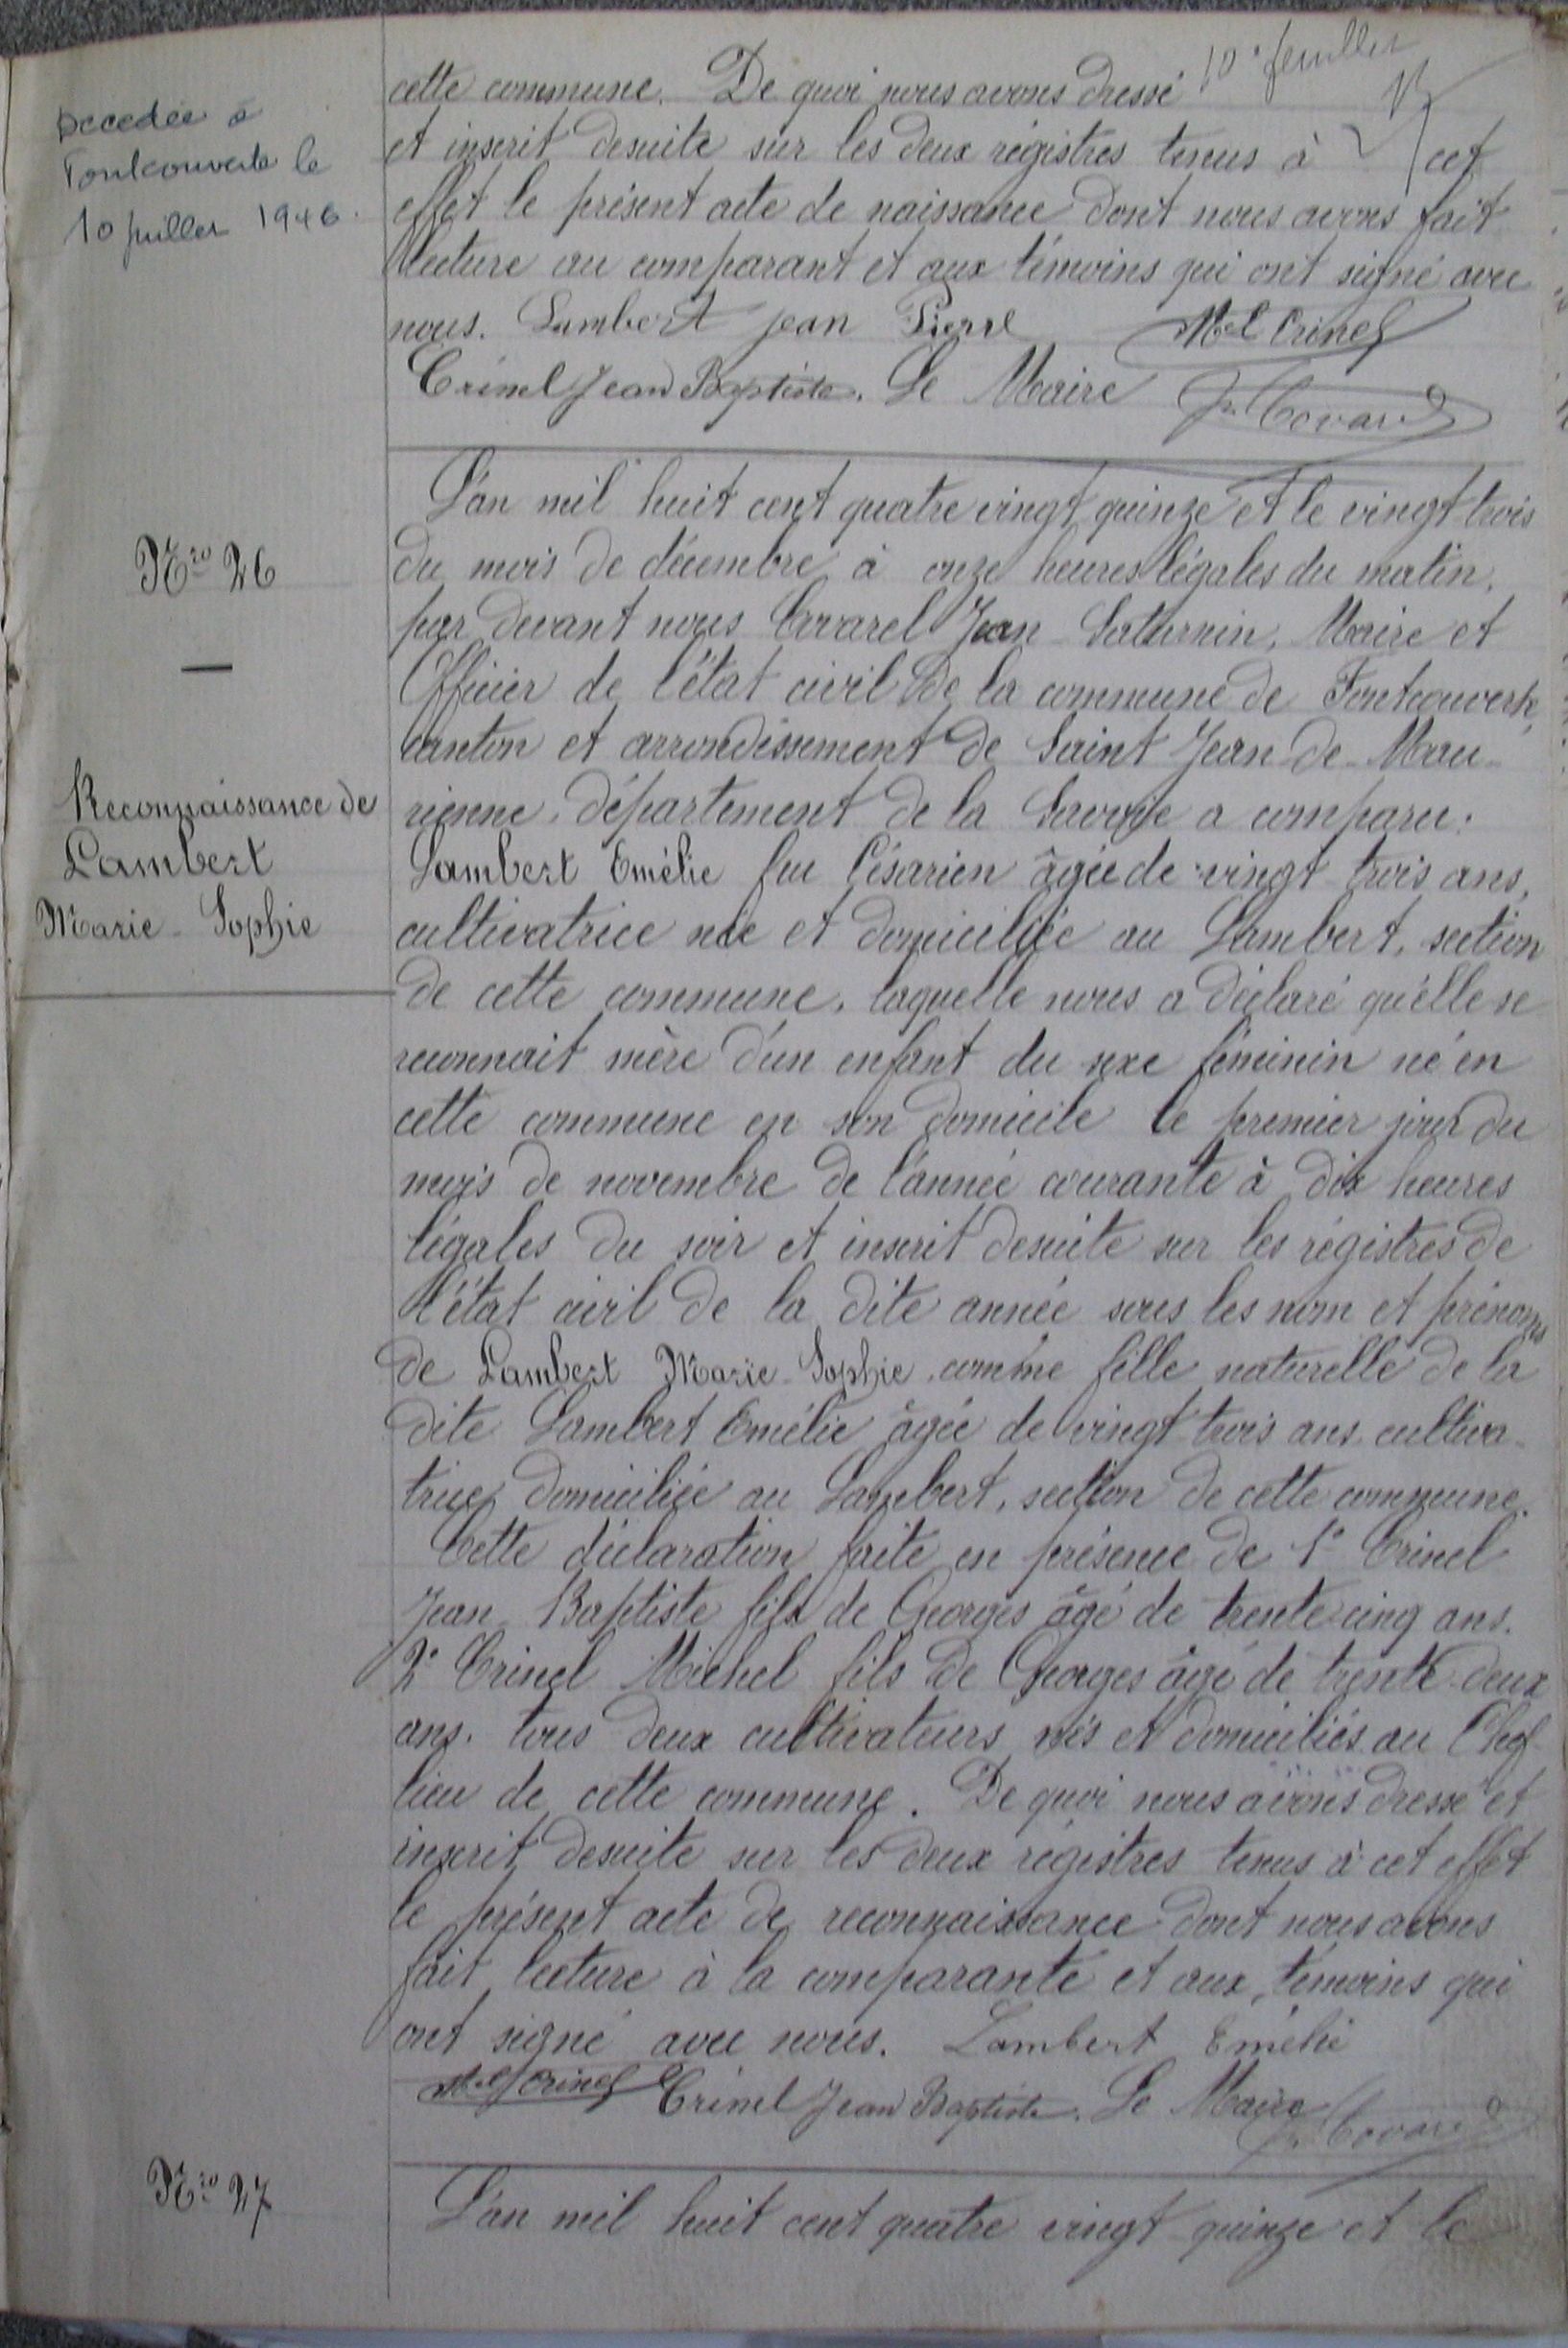 10e feuillet
Décédée à
Fontcouverte le
10 juillet 1946.
cette commune. De quoi nous avons dressé
et inscrit desuite sur les deux régistres tenus à cet
effet le présent acte de naissance dont nous avons fait
lecture au comparant et aux témoins qui ont signé avec
nous. Lambert jean Pierre Mel Crinel
Crinel Jean Baptiste. Le Maire J. Covarel
Nro 26
—
Reconnaissance de
Lambert
Marie-Sophie
L'an mil huit cent quatre vingt quinze et le vingt-trois
du mois de décembre à onze heures légales du matin,
par devant nous Covarel Jean Saturnin, Maire et
Officier de l'état civil de la commune de Fontcouverte,
canton et arrondissement de Saint Jean-de-Mau-
rienne, département de la Savoie a comparu.
Lambert Emélie feu Césarien âgée de vingt-trois ans,
cultivatrice née et domiciliée au Lambert, section
de cette commune, laquelle nous a déclaré qu'elle se
reconnait mère d'un enfant du sexe féminin né en
cette commune en son domicile le premier jour du
mois de novembre de l'année courante à dix heures
légales du soir et inscrit desuite sur les régistres de
l'état civil de la dite année sous les nom et prénoms
de Lambert Marie-Sophie comme fille naturelle de la
dite Lambert Emélie âgée de vingt trois ans cultiva-
trice domiciliée au Lambert, section de cette commune.
Cette déclaration faite en présence de 1° Crinel
Jean Baptiste fils de Georges âgé de trente-cinq ans.
2° Crinel Michel fils de Georges âgé de trente-deux
ans. tous deux cultivateurs nés et domiciliés au Chef-
lieu de cette commune. De quoi nous avons dressé et
inscrit desuite sur les deux régistres tenus à cet effet
le présent acte de reconnaissance dont nous avons
fait lecture à la comparante et aux témoins qui
ont signé avec nous. Lambert Emélie
Mel Crinel Crinel Jean Baptiste. Le Maire J. Covarel
Nro 27
L'an mil huit cent quatre vingt-quinze et le